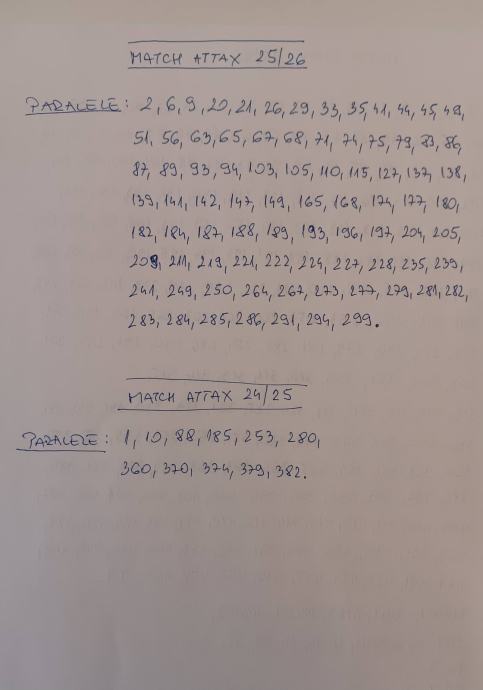 MATCH ATTAX 25/26
PARALELE: 2, 6, 9, 20, 21, 26, 29, 33, 35, 41, 44, 45, 49,
51, 56, 63, 65, 67, 68, 71, 74, 75, 79, 83, 86,
87, 89, 93, 94, 103, 105, 110, 115, 127, 137, 138,
139, 141, 142, 147, 149, 165, 168, 174, 177, 180,
182, 184, 187, 188, 189, 193, 196, 197, 204, 205,
209, 211, 219, 221, 222, 224, 227, 228, 235, 239,
241, 249, 250, 264, 267, 273, 277, 279, 281, 282,
283, 284, 285, 286, 291, 294, 299.
MATCH ATTAX 24/25
PARALELE: 1, 10, 88, 185, 253, 280,
360, 370, 374, 379, 382.